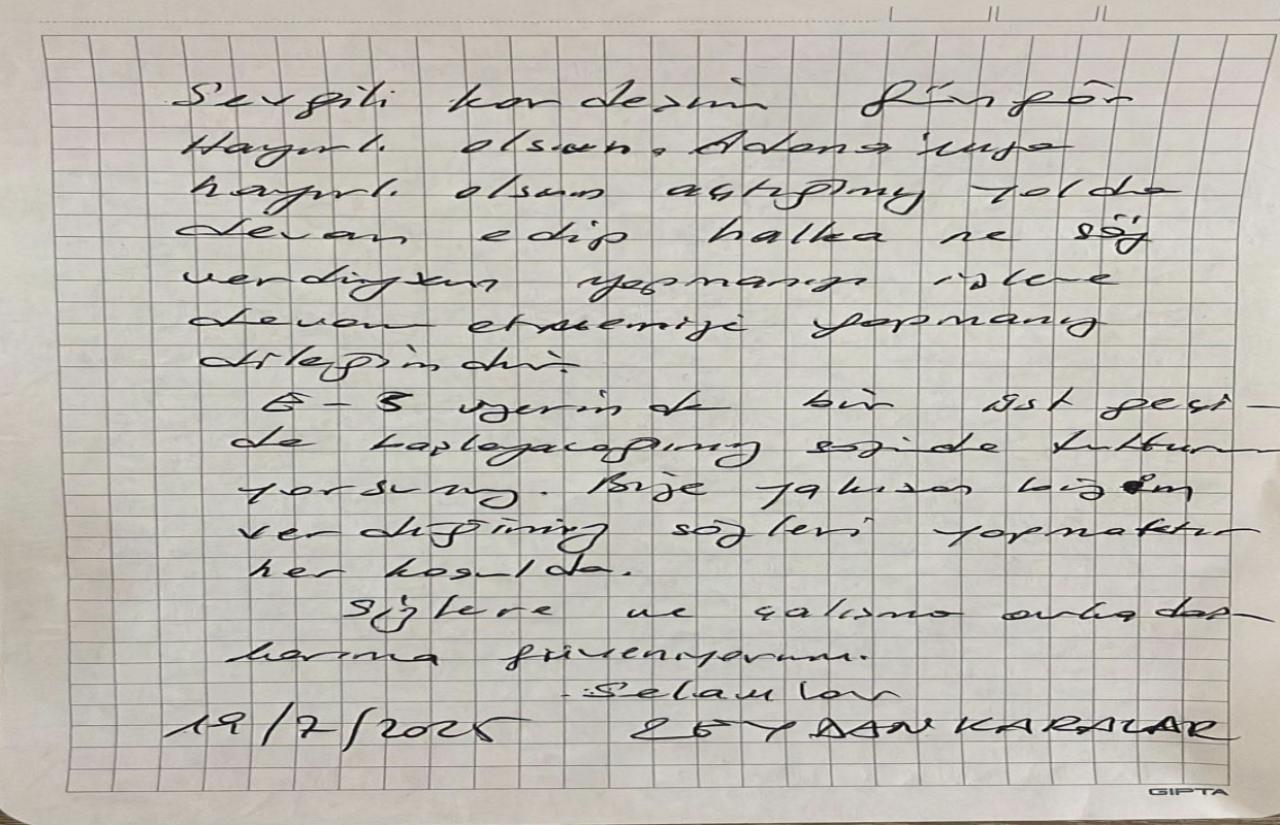 Sevgili kardeşim Güngör
Hayırlı olsun. Adana'mıza
hayırlı olsun açtığımız yolda
devam edip halka ne söz
verdiysen yapmanızı işlere
devam etmenizi yapmanız
dileğimdir.
E-5 üzerinde bir üst geçi-
de başlayacağımız sözünde
yorsunuz. Bize yakışan bizim
verdiğimiz sözleri yapmaktır
her koşulda.
Sizlere ve çalışma arkadaş-
larıma güveniyorum.
Selamlar
19/7/2025 ZEYDAN KARALAR
GIPTA